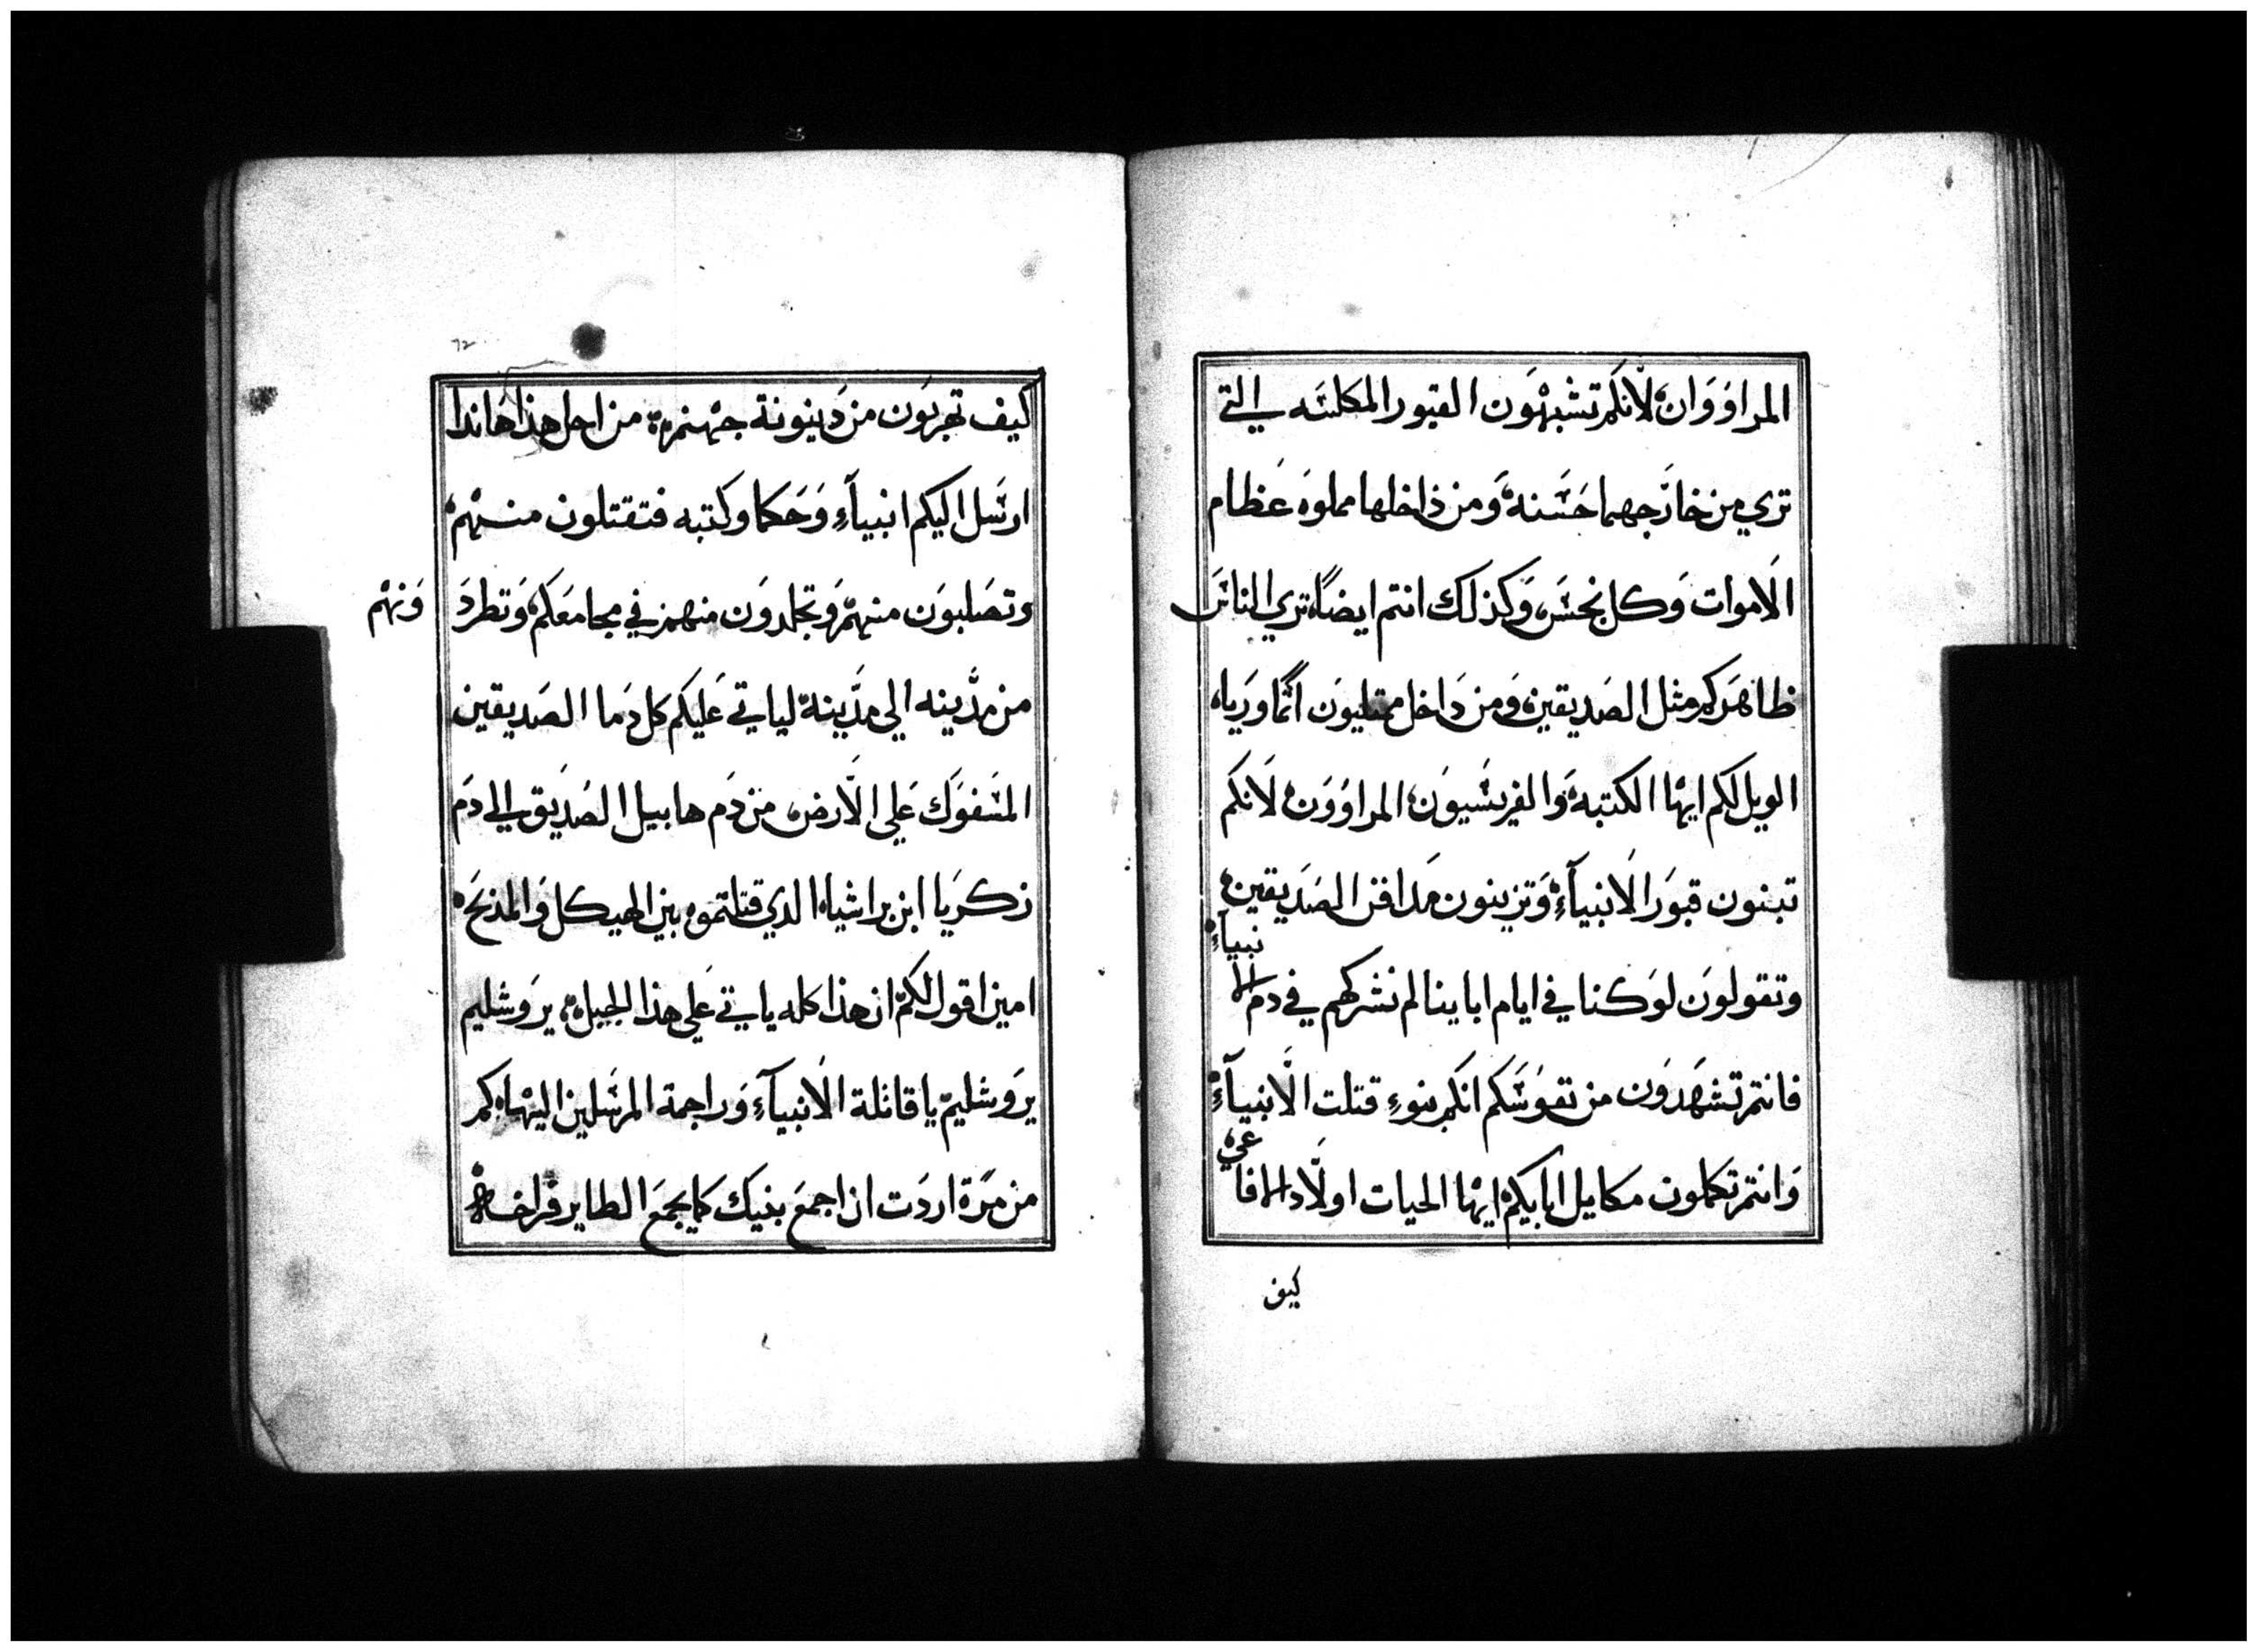 المراوَوَان لانكم تشبهَون القبور المكلسَه التي
تري من خارَجهما حَسَنه وَمن ذاخلها مملوه عَظام
الاموات وَكل نجسَ وَكذلك انتم ايضًا تري الناسَ
ظاهَركم مثل الصَديقين وَمن دَاخل ممتليون اثمًا ورَياه
الويل لكم ايها الكتبه وَالفريسَيون المراوَوَن لانكم
تبنون قبوَر الانبيآءِ وَتزينون مَدافن الصَديقين
وتقولوَن لوَكنا في ايام اباينا لم نشركهم في دم الانبيآءِ
فانتم تشهَدوَن من نفوسَكم انكم بنوءِ قتلت الانبيآءِ
وَانتم تكملون مكايل ابايكم ايها الحيات اولاد الافاعي
كيف
كيف تهربَون من دَينونة جهنم من اجل هذا هَاندا
ارسَل اليكم انبيآءِ وَحَكما وَكتبه فتقتلون منهم
وتصَلبوَن منهم وَتجلدوَن منهم في مجامعَكم وَتطردَ
وَنهم
من مدَينه الي مدَينة لياتي عَليكم كل دَما الصَديقين
المسَفوَك عَلي الارض من دَم هابيل الصَديق الي دَم
زكرَيا ابن براشياه الدي قتلتموه بين الهيكل وَالمذبَح
امين اقول لكم ان هذا كله ياتي عَلي هذا الجيل يرَوشليم
يرَوشليم يا قاتلة الانبيآءِ وَراجمة المرسَلين اليها كم
من مَرَة اردَت ان اجمعَ بنيك كما يجمعَ الطاير فراخه